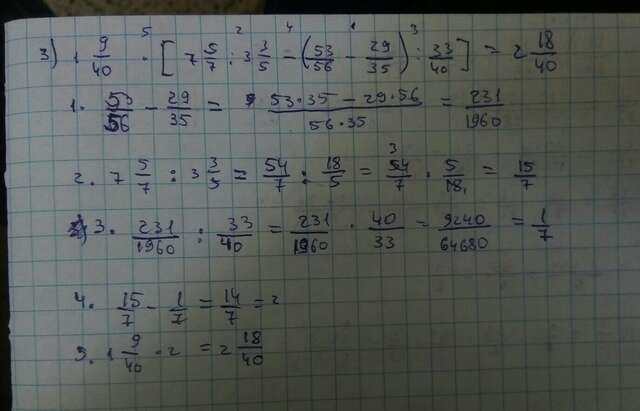 3) 1 9/40 · [ 7 5/7 : 3 3/5 - (53/56 - 29/35) : 33/40 ] = 2 18/40
5 2 4 1 3
1. 53/56 - 29/35 = 53·35 - 29·56 / 56·35 = 231/1960
2. 7 5/7 : 3 3/5 = 54/7 : 18/5 = 54/7 · 5/18 = 15/7
3. 231/1960 : 33/40 = 231/1960 · 40/33 = 9240/64680 = 1/7
4. 15/7 - 1/7 = 14/7 = 2
5. 1 9/40 · 2 = 2 18/40